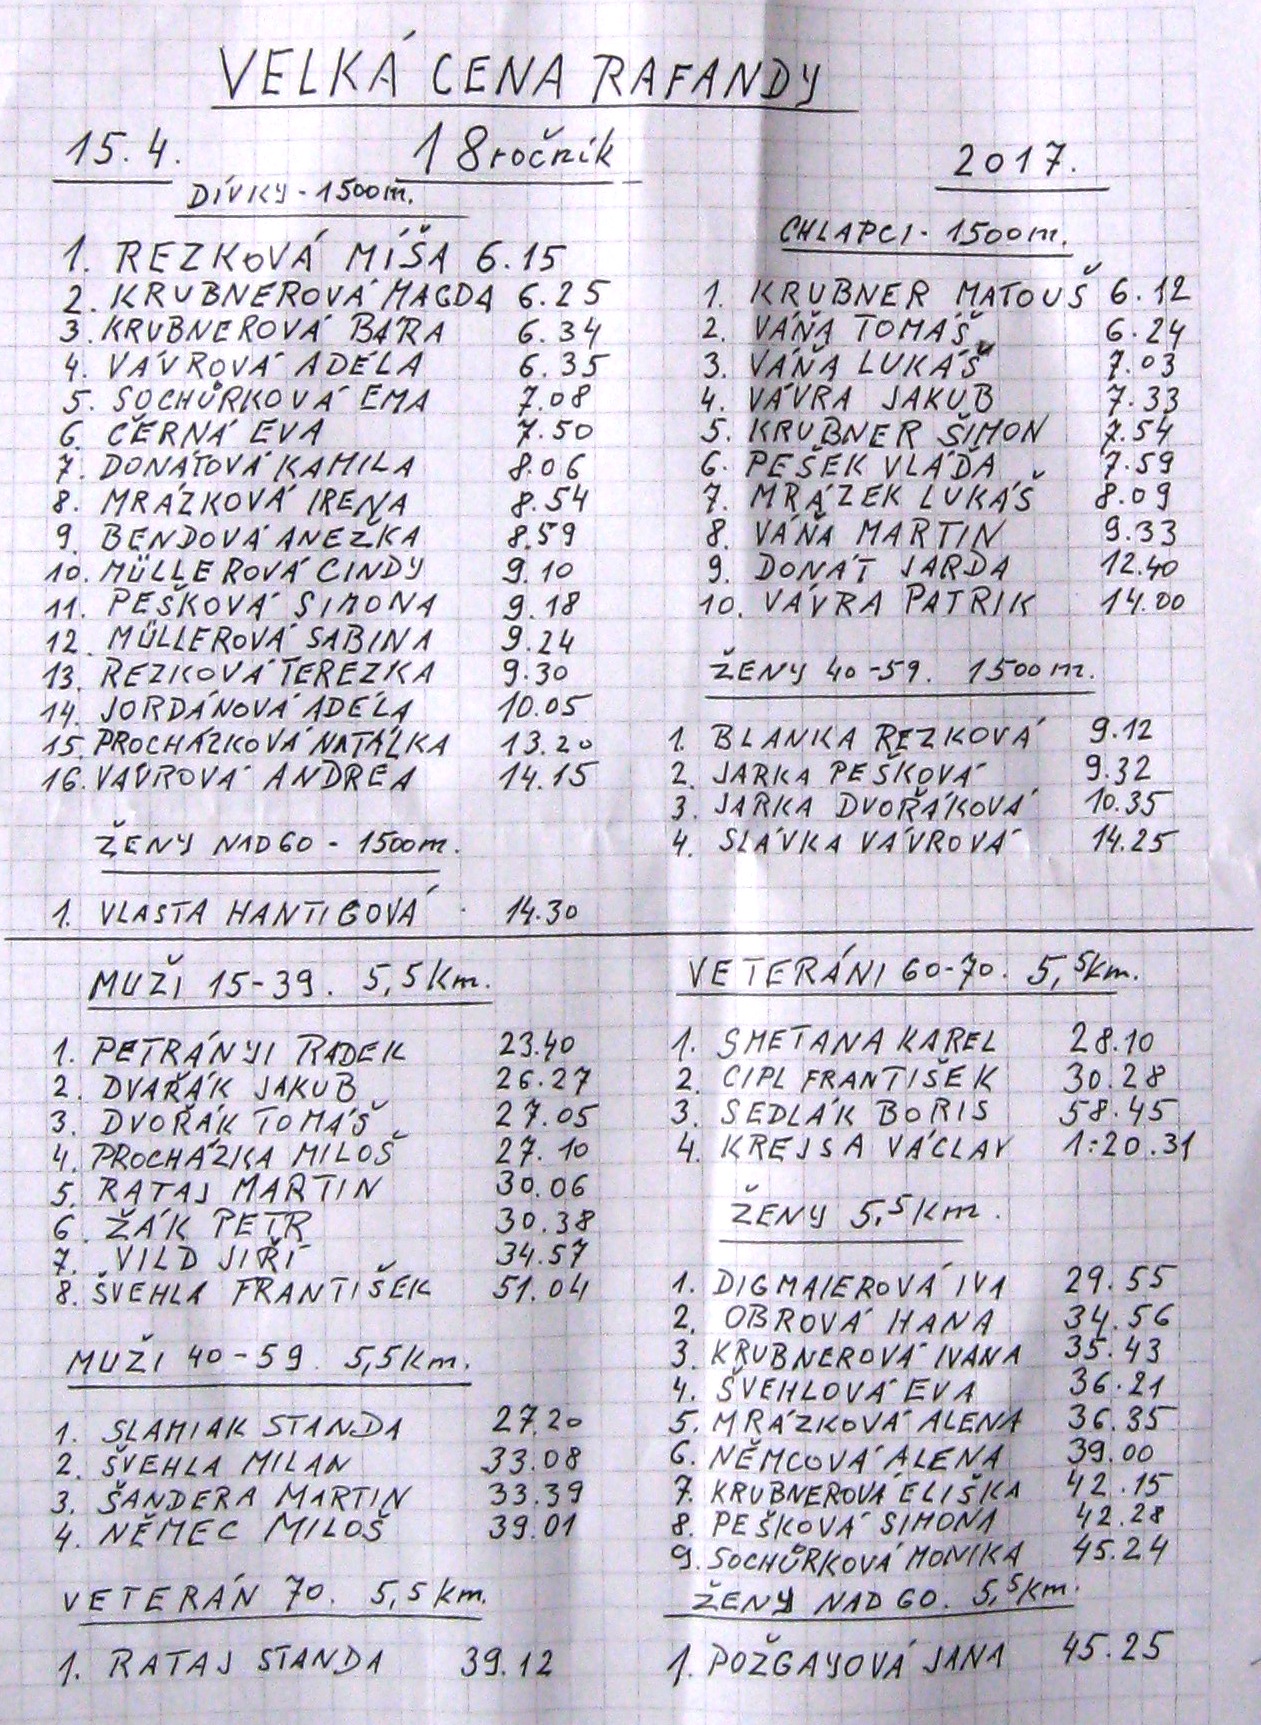 VELKÁ CENA RAFANDY
15.4. 18 ročník 2017.
DÍVKY - 1500m.
1. REZKOVÁ MÍŠA 6.15
2. KRUBNEROVÁ MAGDA 6.25
3. KRUBNEROVÁ BÁRA 6.34
4. VÁVROVÁ ADÉLA 6.35
5. SOCHŮRKOVÁ EMA 7.08
6. ČERNÁ EVA 7.50
7. DONÁTOVÁ KAMILA 8.06
8. MRÁZKOVÁ IRENA 8.54
9. BENDOVÁ ANEŽKA 8.59
10. MÜLLEROVÁ CINDY 9.10
11. PEŠKOVÁ SIMONA 9.18
12. MÜLLEROVÁ SABINA 9.24
13. REZKOVÁ TEREZKA 9.30
14. JORDÁNOVÁ ADÉLA 10.05
15. PROCHÁZKOVÁ NATÁLKA 13.20
16. VÁVROVÁ ANDREA 14.15
ŽENY NAD 60 - 1500m.
1. VLASTA HANTIGOVÁ 14.30
CHLAPCI - 1500m.
1. KRUBNER MATOUŠ 6.12
2. VÁŇA TOMÁŠ 6.24
3. VÁŇA LUKÁŠ 7.03
4. VÁVRA JAKUB 7.33
5. KRUBNER ŠIMON 7.54
6. PEŠEK VLÁĎA 7.59
7. MRÁZEK LUKÁŠ 8.09
8. VÁŇA MARTIN 9.33
9. DONÁT JARDA 12.40
10. VÁVRA PATRIK 14.00
ŽENY 40-59. 1500m.
1. BLANKA REZKOVÁ 9.12
2. JARKA PEŠKOVÁ 9.32
3. JARKA DVOŘÁKOVÁ 10.35
4. SLÁVKA VÁVROVÁ 14.25
MUŽI 15-39. 5,5km.
1. PETRÁNYI RADEK 23.40
2. DVAŘÁK JAKUB 26.27
3. DVOŘÁK TOMÁŠ 27.05
4. PROCHÁZKA MILOŠ 27.10
5. RATAJ MARTIN 30.06
6. ŽÁK PETR 30.38
7. VILD JIŘÍ 34.57
8. ŠVEHLA FRANTIŠEK 51.04
MUŽI 40-59. 5,5km.
1. SLAMIAK STANDA 27.20
2. ŠVEHLA MILAN 33.08
3. ŠANDERA MARTIN 33.39
4. NĚMEC MILOŠ 39.01
VETERÁN 70. 5,5km.
1. RATAJ STANDA 39.12
VETERÁNI 60-70. 5,5km.
1. SMETANA KAREL 28.10
2. CIPL FRANTIŠEK 30.28
3. SEDLÁK BORIS 58.45
4. KREJSA VÁCLAV 1:20.31
ŽENY 5,5km.
1. DIGMAIEROVÁ IVA 29.55
2. OBROVÁ HANA 34.56
3. KRUBNEROVÁ IVANA 35.43
4. ŠVEHLOVÁ EVA 36.21
5. MRÁZKOVÁ ALENA 36.35
6. NĚMCOVÁ ALENA 39.00
7. KRUBNEROVÁ ELIŠKA 42.15
8. PEŠKOVÁ SIMONA 42.28
9. SOCHŮRKOVÁ MONIKA 45.24
ŽENY NAD 60. 5,5km.
1. POŽGAYOVÁ JANA 45.25